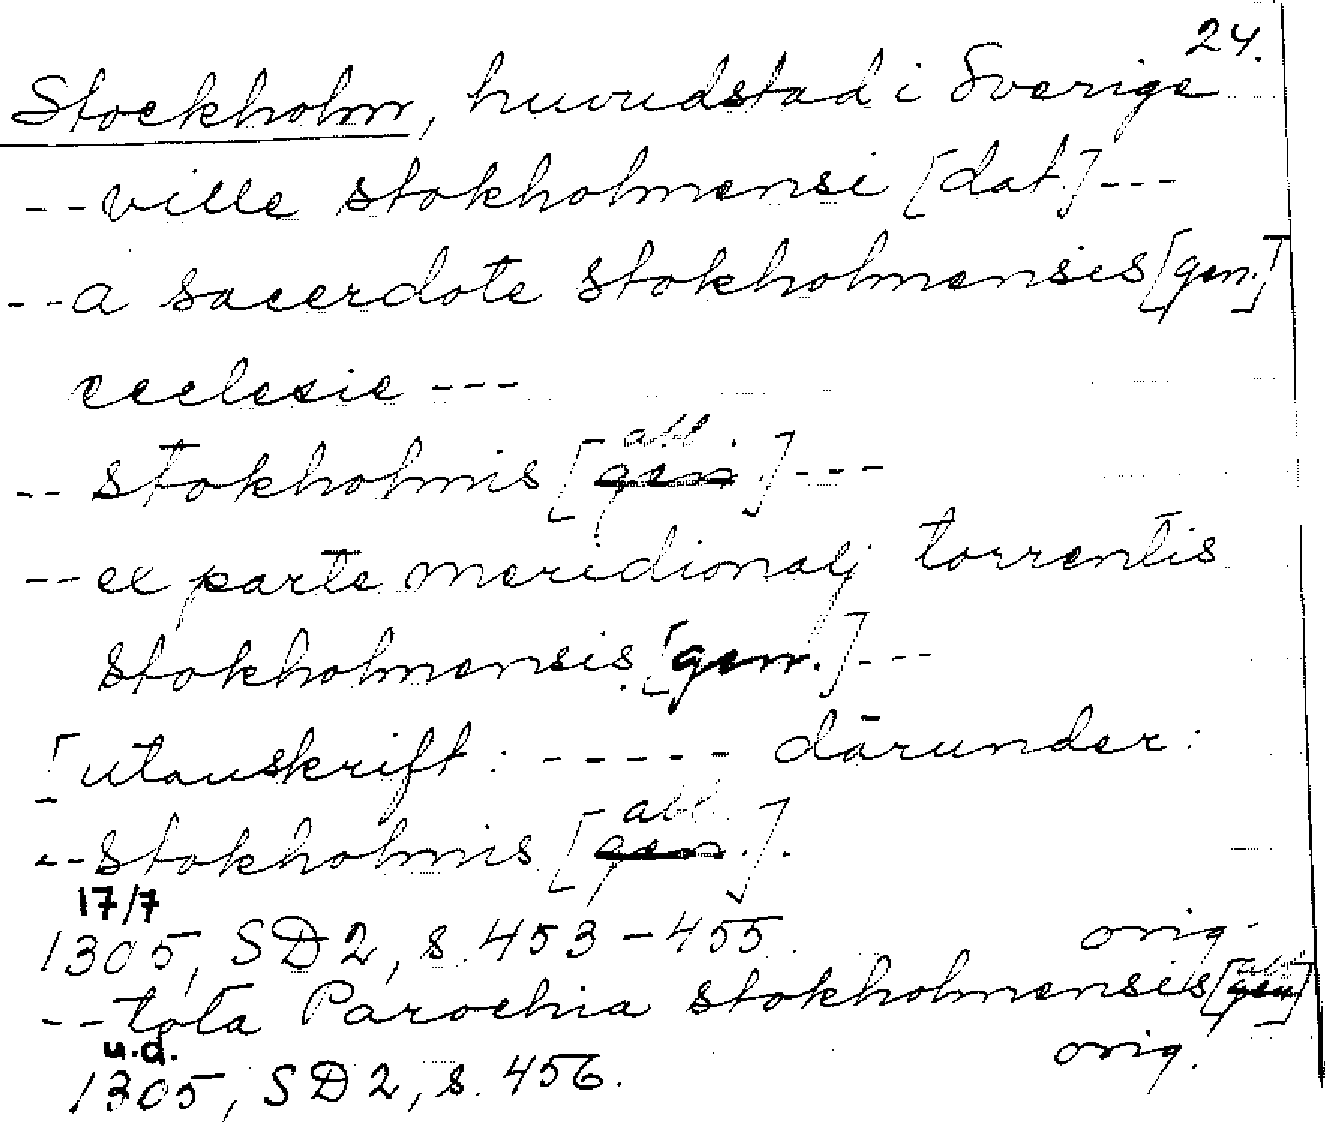 24.
Stockholm, huvudstad i Sverige
--ville stokholmensi [dat.]---
--a sacerdote stokholmensis [gen.]
ecclesie ---
abl.
-- stokholmis [gen.]---
--ex parte meridionalj torrentis
stokholmensis [gen.]---
[utanskrift: ----- därunder:
abl.
--stokholmis [gen.].
17/7
1305, SD2, s. 453-455. orig.
--tota Parochia stokholmensis [gen]
u.d.
1305, SD2, s. 456. orig.